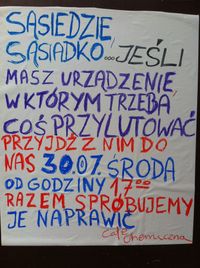 SĄSIEDZIE,
SĄSIADKO...JEŚLI
MASZ URZĄDZENIE,
W KTÓRYM TRZEBA
COŚ PRZYLUTOWAĆ
PRZYJDŹ Z NIM DO
NAS 30.07. ŚRODA
OD GODZINY 17⁰⁰
RAZEM SPRÓBUJEMY
JE NAPRAWIĆ
Cafe